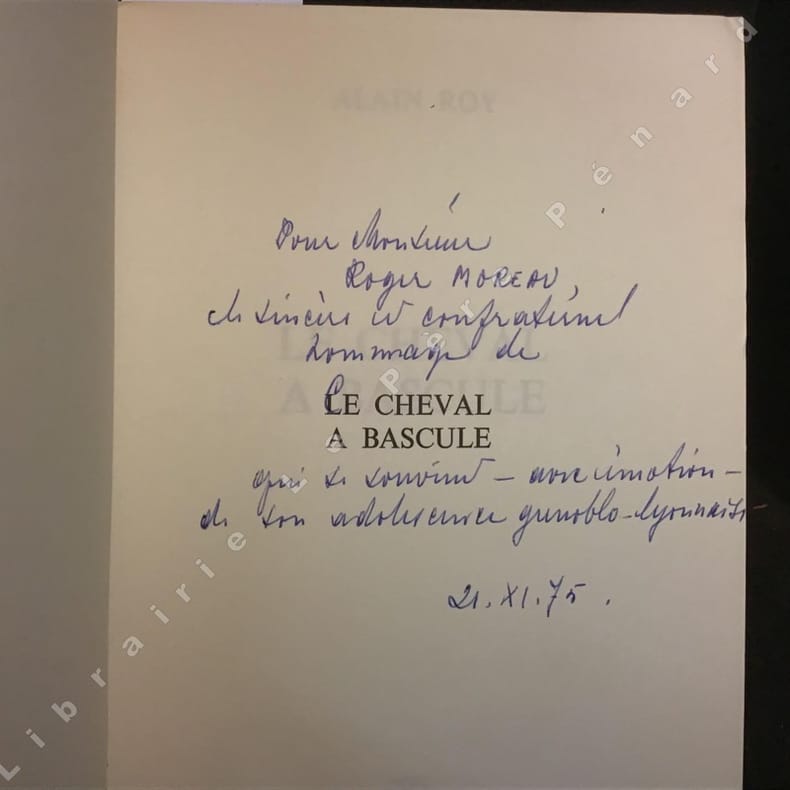 ALAIN ROY
Pour Monsieur
Roger MOREAU,
ce sincère et confraternel
hommage de
LE CHEVAL
A BASCULE
qui se souvient – avec émotion –
de son adolescence grenoblo-lyonnaise
21.XI.75.
Librairie Le Père Pénard